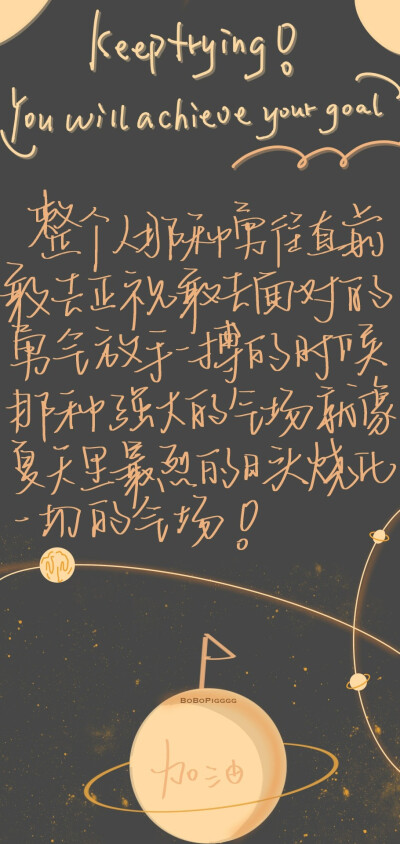 Keep trying!
You will achieve your goal
整个人那种勇往直前
敢去正视敢去面对的
勇气放手一搏的时候
那种强大的气场就像
夏天里最烈的日头烧死
一切的气场!
BoBoPiGGGG
加油